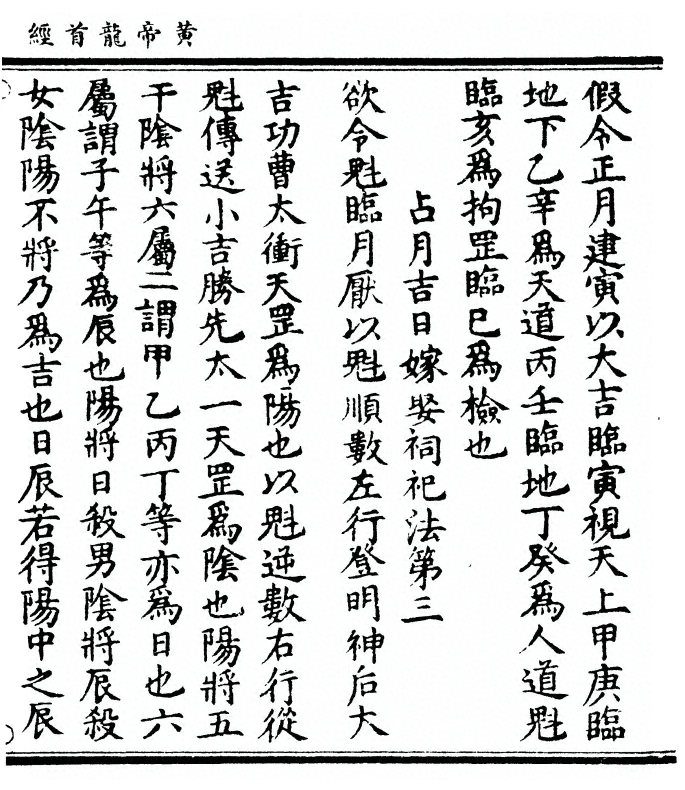 黄帝龍首經
假令正月建寅以大吉臨寅視天上甲庚臨
地下乙辛爲天道丙壬臨地丁癸爲人道魁
臨亥爲拘罡臨巳爲檢也
占月吉日嫁娶祠祀法第三
欲令魁臨月厭以魁順數左行登明神后大
吉功曹太衝天罡爲陽也以魁逆數右行從
魁傳送小吉勝先太一天罡爲陰也陽將五
干陰將六屬二謂甲乙丙丁等亦爲日也六
屬謂子午等爲辰也陽將日殺男陰將辰殺
女陰陽不將乃爲吉也日辰若得陽中之辰